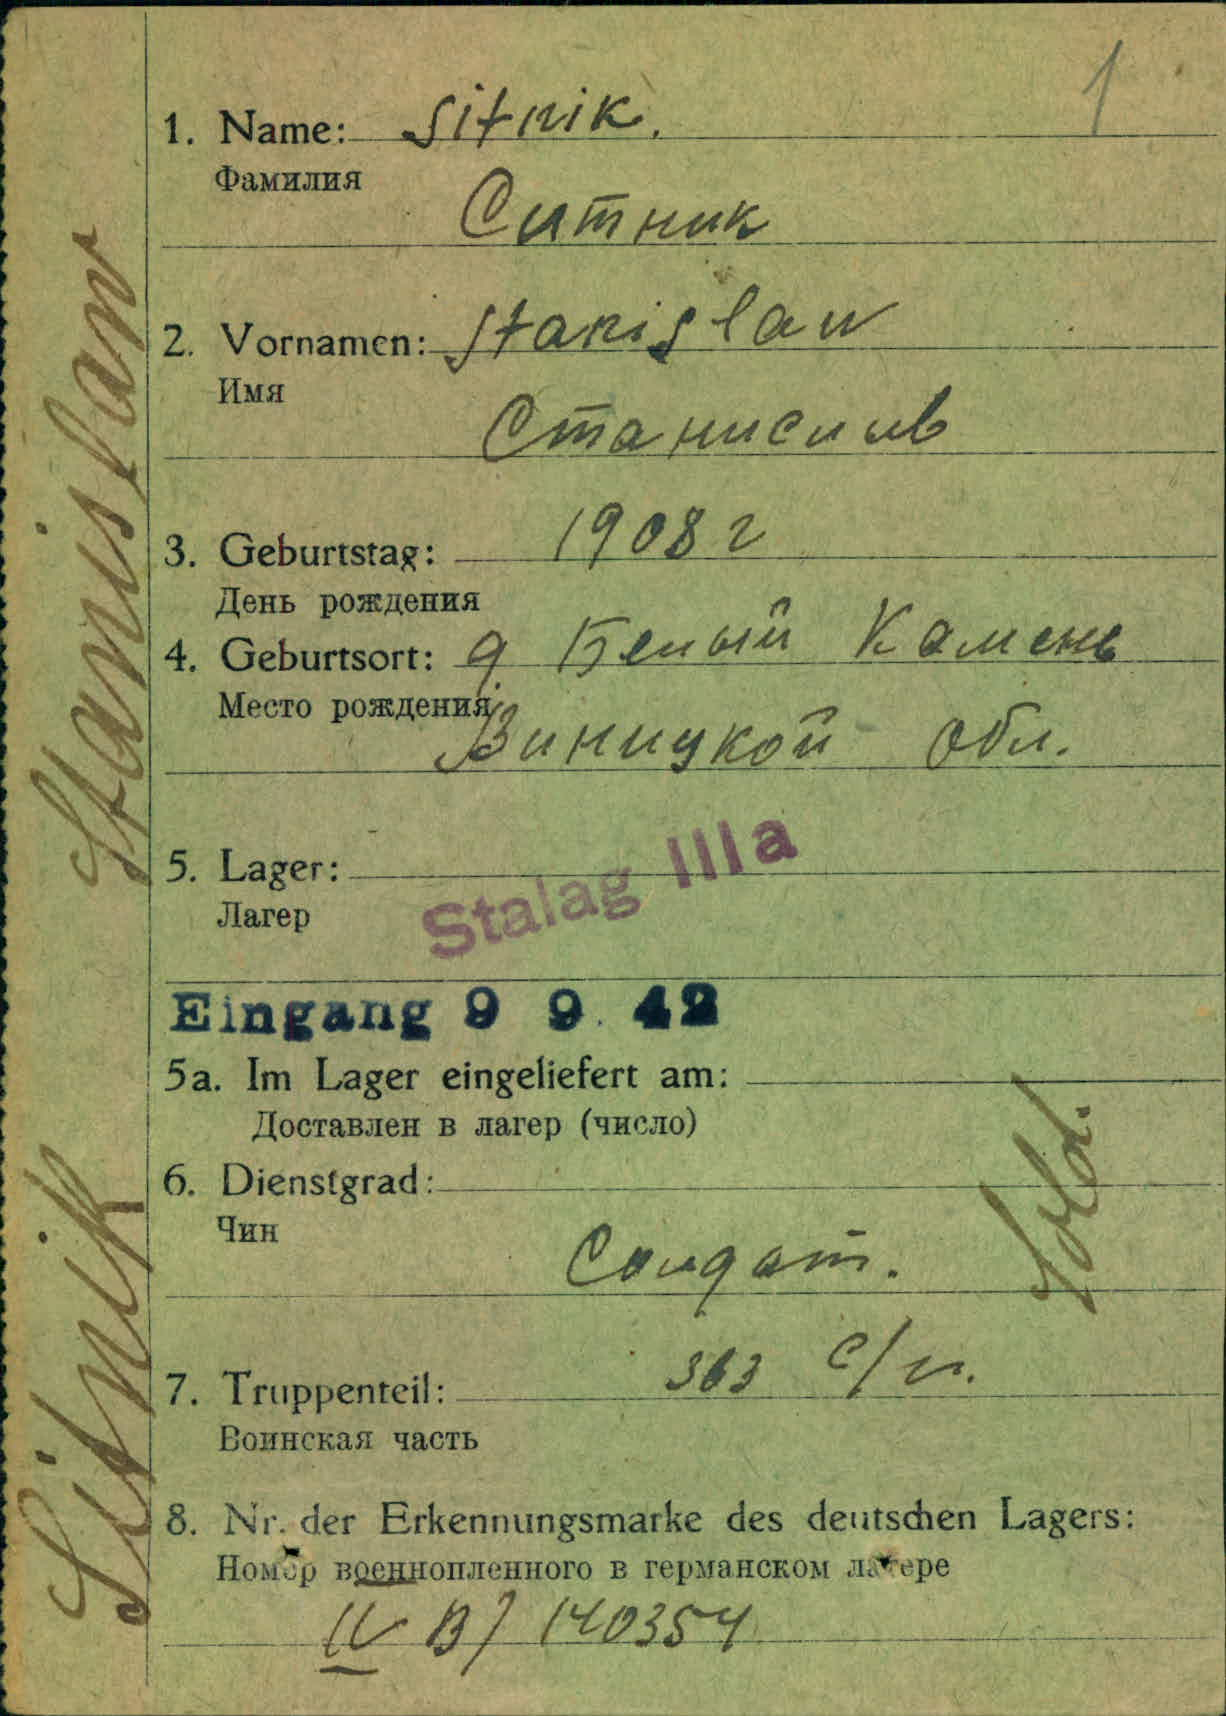 1
1. Name: Sitnik.
Фамилия
Ситник
2. Vornamen: Stanislaw
Имя
Станислав
3. Geburtstag: 1908 г
День рождения
4. Geburtsort: д Белый Камень
Место рождения
Виницкой обл.
5. Lager:
Лагер
Stalag IIIa
Eingang 9 9. 42
5a. Im Lager eingeliefert am:
Доставлен в лагер (число)
6. Dienstgrad:
Чин
Sold.
Солдат.
7. Truppenteil: 363 с/п.
Воинская часть
8. Nr. der Erkennungsmarke des deutschen Lagers:
Номер военнопленного в германском лагере
IV B / 140354
Sitnik Stanislaw